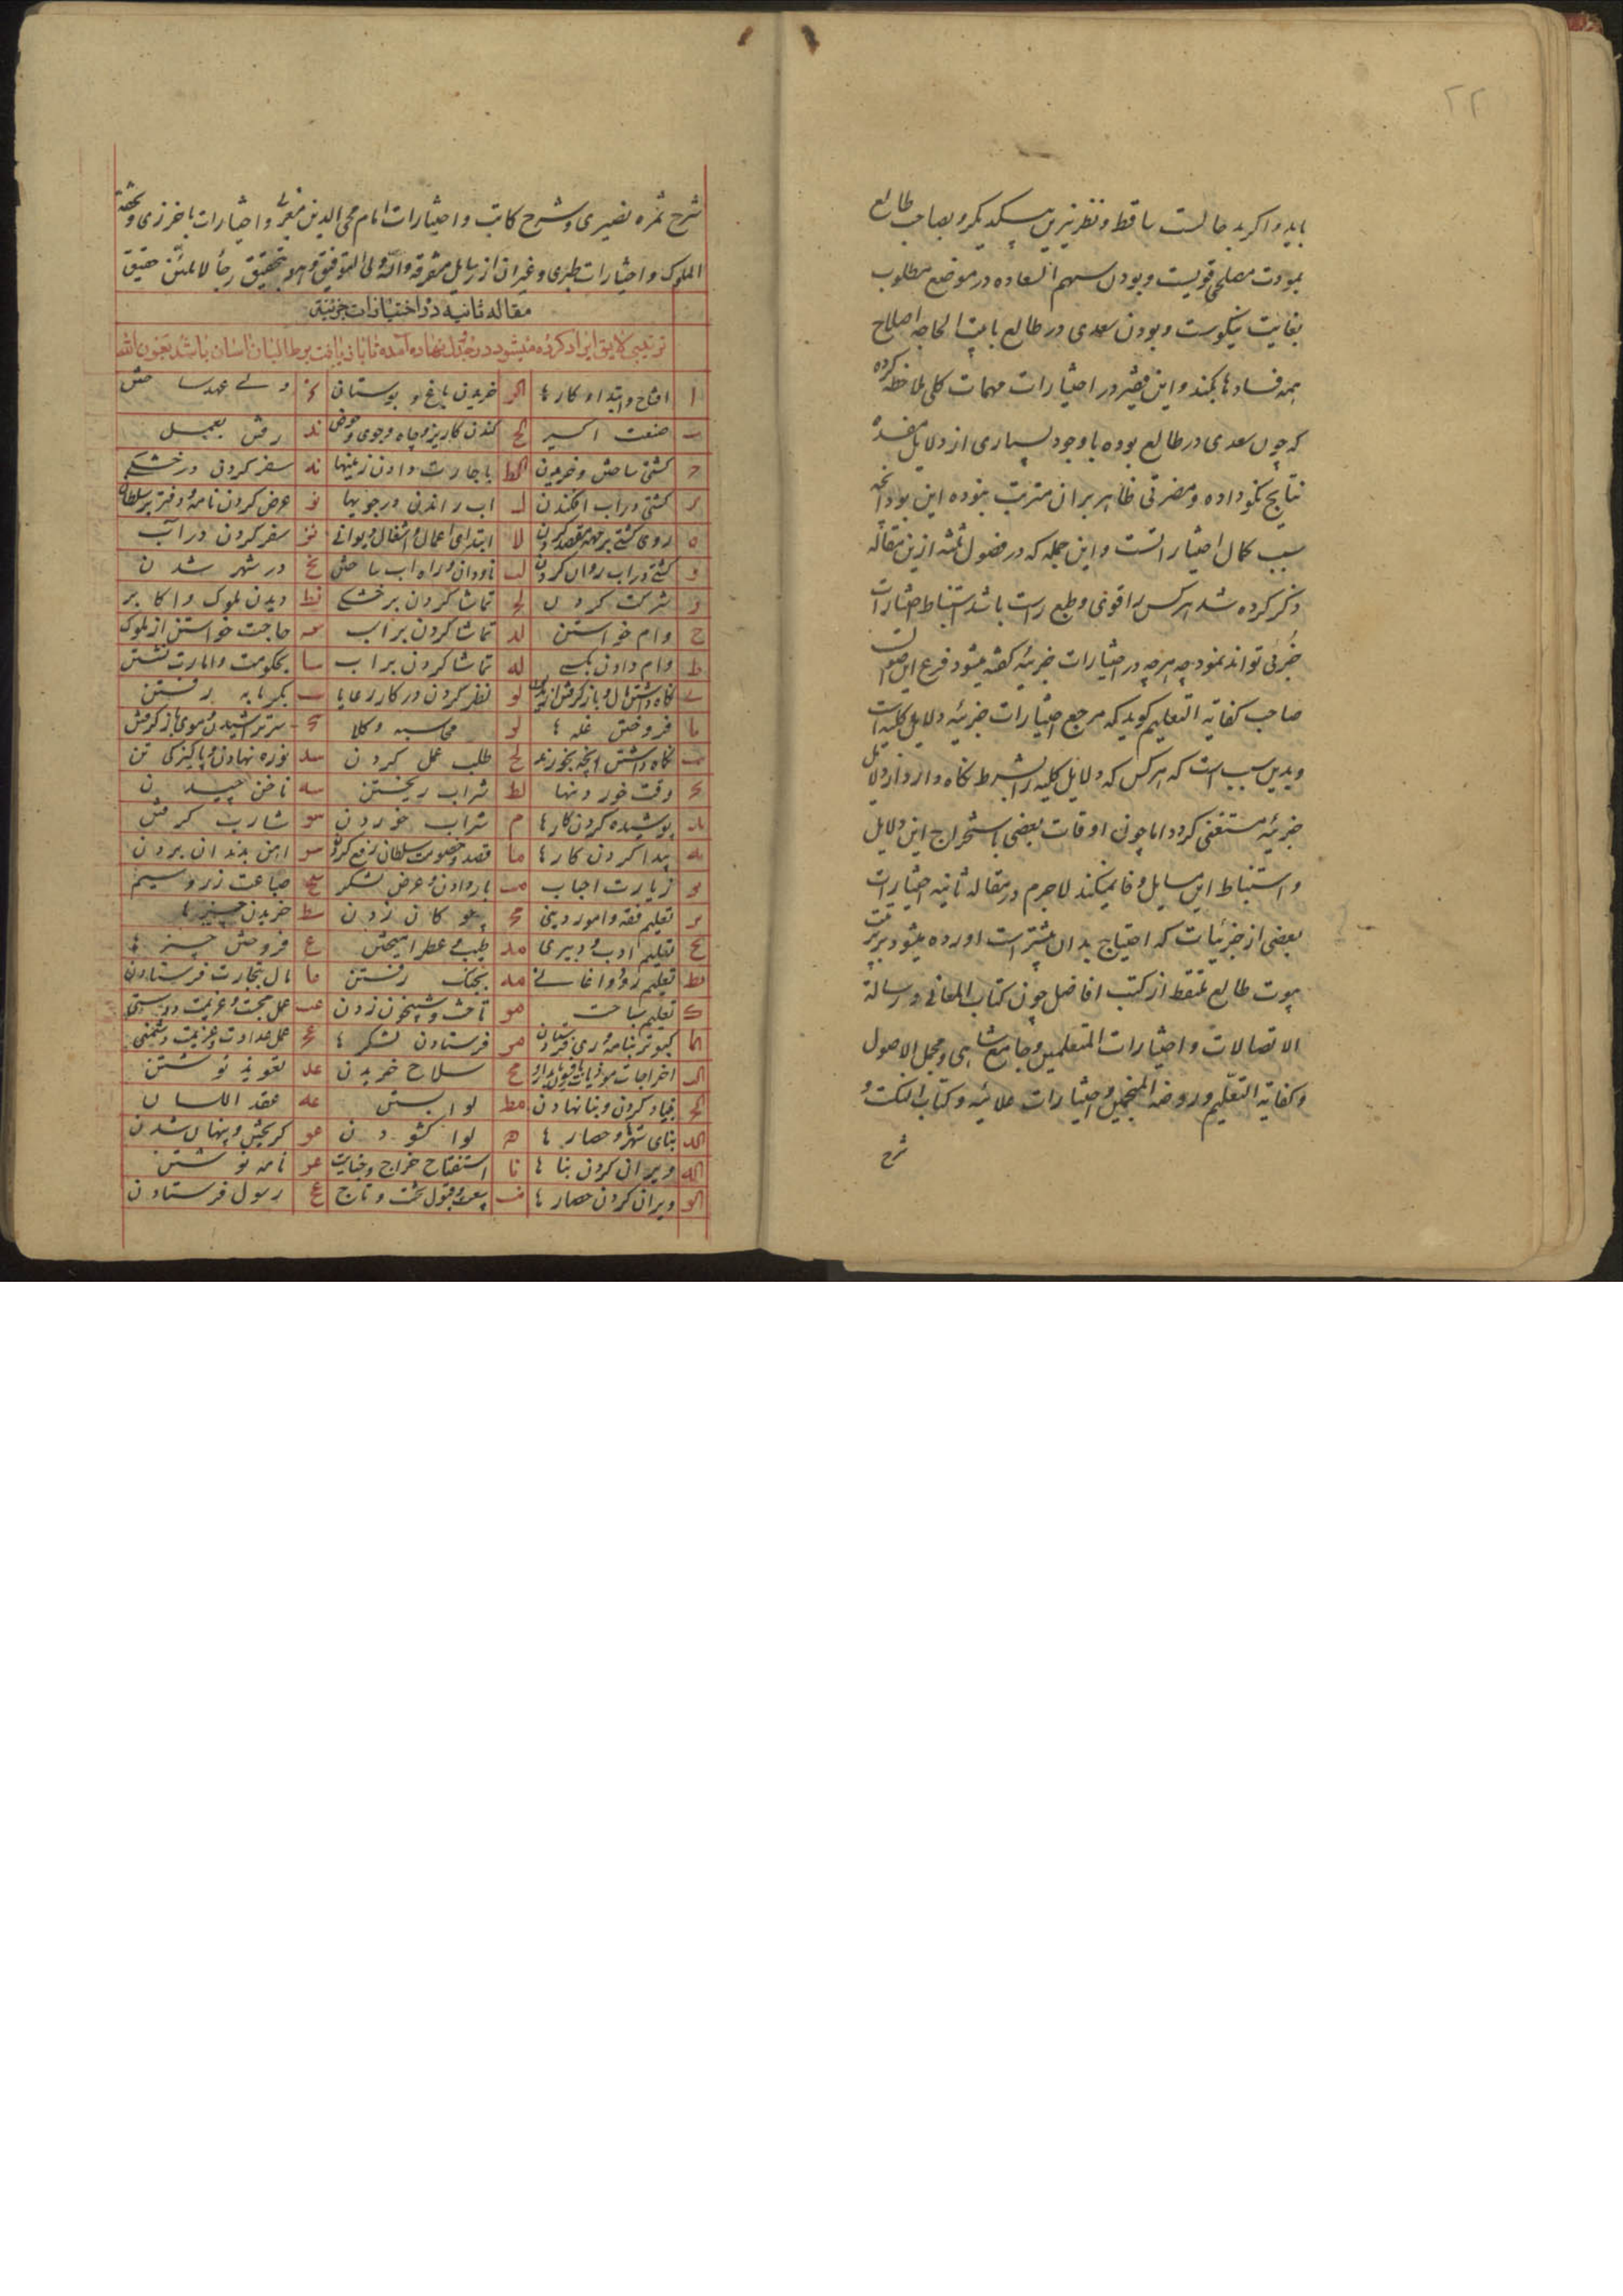 ۲۲
باید و اگر بد حالست ساقط و نظر نیرین بیکدیگر و بصاحب طالع
بمودت مصلحی قویست و بودن سهم السعاده در موضع مطلوب
بغایت نیکوست و بودن سعدی در طالع یا بیت الحاجه اصلاح
همه فسادها بکند و این فقیر در اختیارات مهمات کلی ملاحظه کرده
که چون سعدی در طالع بوده با وجود بسیاری از دلایل مفسده
نتایج نکو داده و مضرتی ظاهر بران مترتب نبوده این بود آنچه
سبب کمال اختیار است و این جمله که در فصول ثلثه ازین مقاله
ذکر کرده شد هر کس را قوتی و طبع راست باشد استنباط اختیارات
جزئی تواند نمود چه هرچه در اختیارات جزئیه گفته میشود فرع این اصول است
صاحب کفایه التعلیم گوید که مرجع اختیارات جزئیه دلایل کلیه است
و بدین سبب است که هر کس که دلایل کلیه را بشرط نگاه دارد از دلایل
جزئیه مستغنی گردد اما چون اوقات بعضی باستخراج این دلایل
و استنباط این مسایل وفا نمیکند لاجرم در مقاله ثانیه اختیارات
بعضی از جزئیات که احتیاج بدان بیشتر است آورده میشود بترتیب
بیوت طالع ملتقط از کتب افاضل چون کتاب المعانی و رساله
الاتصالات و اختیارات المتعلمین و جامع شاهی و مجمل الاصول
و کفایه التعلیم و روضه المنجمین و اختیارات علائیه و کتاب النکت و
شرح
شرح ثمره نصیری و شرح کاتب و اختیارات امام محی الدین مغربی و اختیارات باخرزی و تحفة
الملوک و اختیارات طبری و غیر آن از رسایل متفرقه والله ولی التوفیق
مقاله ثانیه در اختیارات جزئیه
ترتیبی لایق ایراد کرده میشود در جدول نهاده آمده تا یافت بر طالبان آسان باشد بعون الله
ا افتتاح و ابتداء کارها الر خریدن باغ و بوستان ولی عهد ساختن
ب صنعت اکسیر الح کندن کاریز و چاه و جوی و حوض ند رفتن بعمل
ح کشتی ساختن و خریدن الط باجارت دادن زمینها نه سفر کردن در خشکی
د کشتی در آب افکندن ل آب راندن در جویها نو عرض کردن نامه و دفتر بر سلطان
ه روی کشتی بر جهت مقصد کردن لا ابتدای اعمال و اشغال دیوانی نز سفر کردن در آب
و کشتی در آب روان کردن لب ناودان و راه آب ساختن نح در شهر شدن
ز شرکت کردن لح تماشا کردن بر خشکی نط دیدن ملوک و اکابر
ح وام خواستن لد تماشا کردن بر آب س حاجت خواستن از ملوک
ط وام دادن بکسی له تماشا کردن بر آب سا بحکومت و امارت نشستن
ی نگاه داشتن مال و باز گرفتن لو نظر کردن در کارزی‌ها سب بگرمابه رفتن
یا فروختن غله‌ها لز محاسبه وکلا سح سر تراشیدن و موی باز کردن
یب نگاه داشتن آنچه بخورند لح طلب عمل کردن سد نوره نهادن و پاکیزگی تن
یح وقت خوردنها لط شراب ریختن سه ناخن چیدن
ید پوشیده کردن کارها م شراب خوردن سو شارب گرفتن
یه پیدا کردن کارها ما قصد و خصومت سلطان رفع کردن سز آهن بدندان بردن
یو زیارت احباب مب بار دادن و عرض لشکر سح صیاغت زر و سیم
یز تعلیم فقه و امور دینی مح چوگان زدن سط خریدن چیزها
یح تعلیم ادب و دبیری مد طیب و عطر آمیختن ع فروختن چیزها
یط تعلیم رود و اغانی مه بجنگ رفتن عا مال بتجارت فرستادن
ک تعلیم سباحت مو تاختن و شبیخون زدن عب عمل محبت و عزیمت دوستی
کا کبوتر بنامه‌وری فرستادن مز فرستادن لشکرها عح عمل عداوت و عزیمت دشمنی
الب اخراجات موذیات مح سلاح خریدن عد تعویذ نوشتن
الح بنیاد کردن و بنا نهادن مط لوا بستن عه عقد اللسان
الد بنای شهر و حصارها ن لوا گشودن عو گریختن و پنهان شدن
اله ویران کردن بناها نا استفتاح خراج و جنایات عز نامه نوشتن
الو ویران کردن حصارها نب بیعت و قبول تخت و تاج عح رسول فرستادن